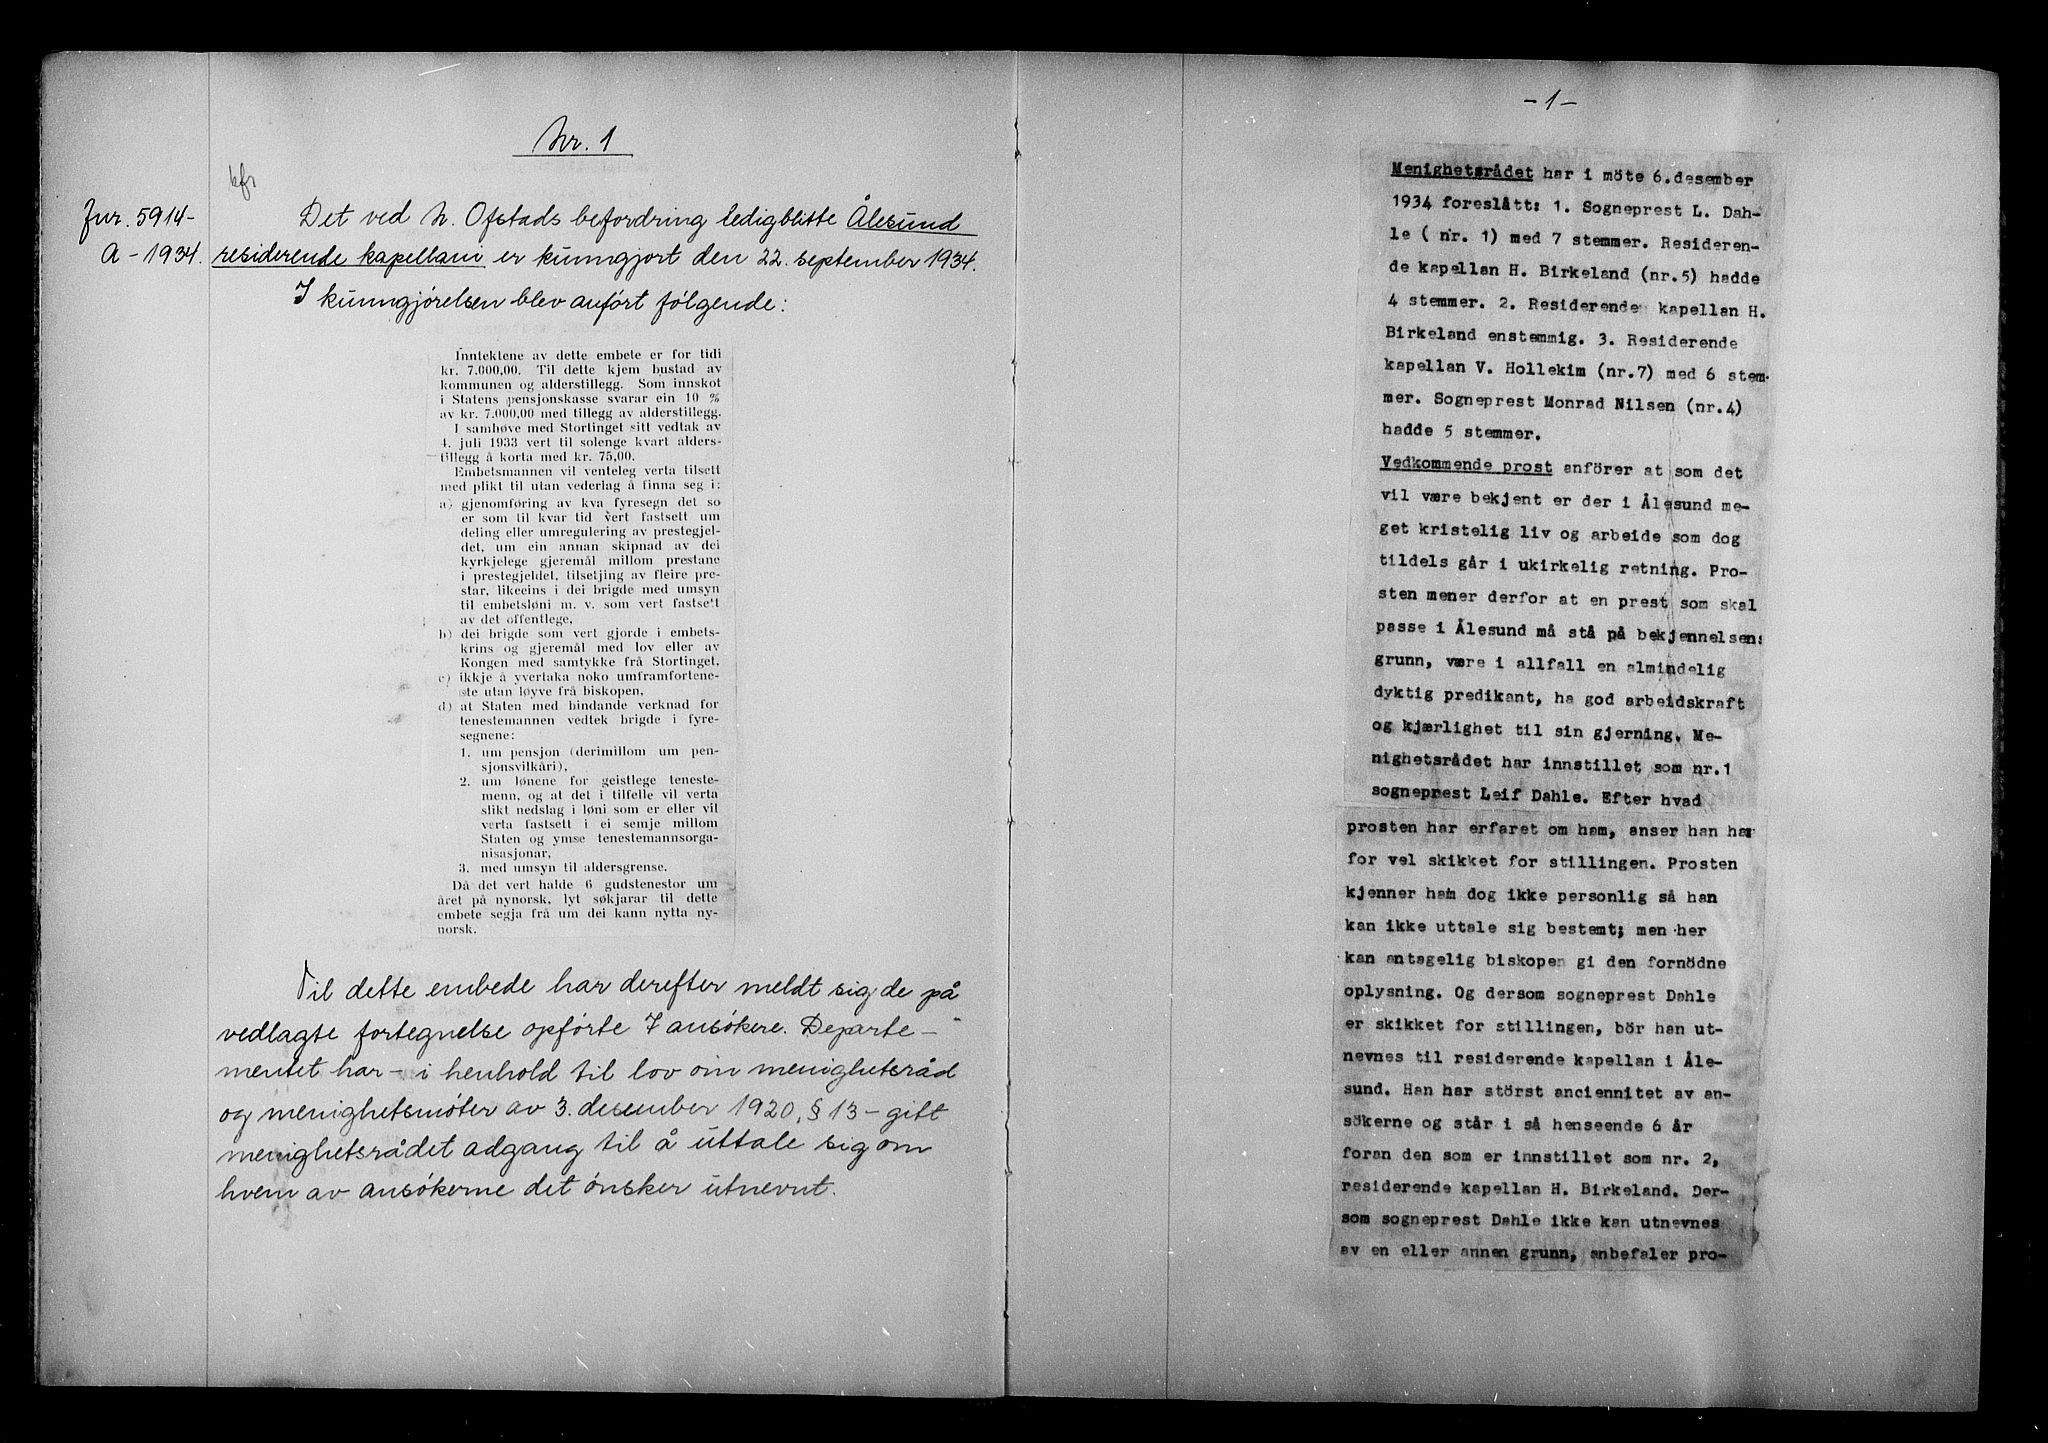 Nr. 1
kfr
Jnr. 5914-
A - 1934.
Det ved N. Ofstads befordring ledigblitte Ålesund
residerende kapellani er kunngjort den 22. september 1934.
I kunngjørelsen blev anført følgende:
Inntektene av dette embete er for tidi
kr. 7.000,00. Til dette kjem bustad av
kommunen og alderstillegg. Som innskot
i Statens pensjonskasse svarar ein 10 %
av kr. 7.000,00 med tillegg av alderstillegg.
I samhøve med Stortinget sitt vedtak av
4. juli 1933 vert til solenge kvart alders-
tillegg å korta med kr. 75,00.
Embetsmannen vil venteleg verta tilsett
med plikt til utan vederlag å finna seg i:
a) gjenomføring av kva fyresegn det so
er som til kvar tid vert fastsett um
deling eller umregulering av prestegjel-
det, um ein annan skipnad av dei
kyrkjelege gjeremål millom prestane
i prestegjeldet, tilsetjing av fleire pre-
star, likeeins i dei brigde med umsyn
til embetsløni m. v. som vert fastsett
av det offentlege,
b) dei brigde som vert gjorde i embets-
krins og gjeremål med lov eller av
Kongen med samtykke frå Stortinget,
c) ikkje å yvertaka noko umframtorene-
ste utan løyve frå biskopen,
d) at Staten med bindande verknad for
tenestemannen vedtek brigde i fyre-
segnene:
1. um pensjon (derimillom um pen-
sjonsvilkåri),
2. um lønene for geistlege teneste-
menn, og at det i tilfelle vil verta
slikt nedslag i løni som er eller vil
verta fastsett i ei semje millom
Staten og ymse tenestemannsorga-
nisasjonar,
3. med umsyn til aldersgrense.
Då det vert halde 6 gudstenestor um
året på nynorsk, lyt søkjarar til dette
embete segja frå um dei kann nytta ny-
norsk.
Til dette embede har derefter meldt sig de på
vedlagte fortegnelse opførte 7 ansøkere. Departe-
mentet har - i henhold til lov om menighetsråd
og menighetsmøter av 3. desember 1920, § 13 - gitt
menighetsrådet adgang til å uttale sig om
hvem av ansøkerne det ønsker utnevnt.
- 1 -
Menighetsrådet har i möte 6.desember
1934 foreslått: 1. Sogneprest L. Dah-
le ( nr. 1) med 7 stemmer. Resideren-
de kapellan H. Birkeland (nr.5) hadde
4 stemmer. 2. Residerende kapellan H.
Birkeland enstemmig. 3. Residerende
kapellan V. Hollekim (nr.7) med 6 stem-
mer. Sogneprest Monrad Nilsen (nr.4)
hadde 5 stemmer.
Vedkommende prost anförer at som det
vil være bekjent er der i Ålesund me-
get kristelig liv og arbeide som dog
tildels går i ukirkelig retning. Pro-
sten mener derfor at en prest som skal
passe i Ålesund må stå på bekjennelsens
grunn, være i allfall en almindelig
dyktig predikant, ha god arbeidskraft
og kjærlighet til sin gjerning. Me-
nighetsrådet har innstillet som nr.1
sogneprest Leif Dahle. Efter hvad
prosten har erfaret om ham, anser han ham
for vel skikket for stillingen. Prosten
kjenner ham dog ikke personlig så han
kan ikke uttale sig bestemt; men her
kan antagelig biskopen gi den fornödne
oplysning. Og dersom sogneprest Dahle
er skikket for stillingen, bör han ut-
nevnes til residerende kapellan i Åle-
sund. Han har störst anciennitet av an-
sökerne og står i så henseende 6 år
foran den som er innstillet som nr. 2,
residerende kapellan H. Birkeland. Der-
som sogneprest Dahle ikke kan utnevnes
av en eller annen grunn, anbefaler pro-